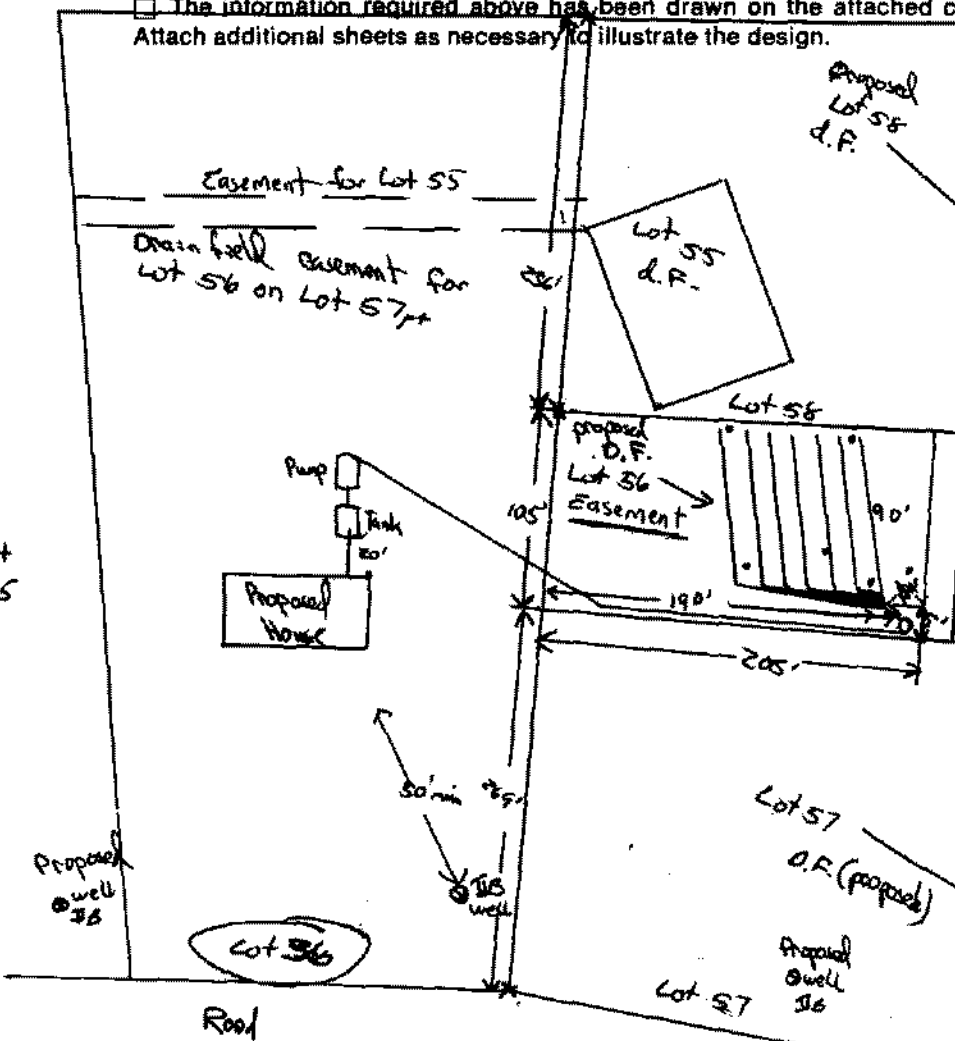 ☐ The information required above has been drawn on the attached c
Attach additional sheets as necessary to illustrate the design.
Proposed
Lot 58
d.F.
Easement for Lot 55
Drain field easement for
Lot 56 on Lot 57
Lot
55
d.F.
Lot 58
proposed
D.F.
Lot 56
Easement
105'
90'
Pump
Tank
20'
Proposed
House
190'
205'
50' min
Lot 57
D.F. (proposed)
Proposed
well
IIB
IIB
well
Lot 56
Proposed
well
IIB
Lot 57
Road